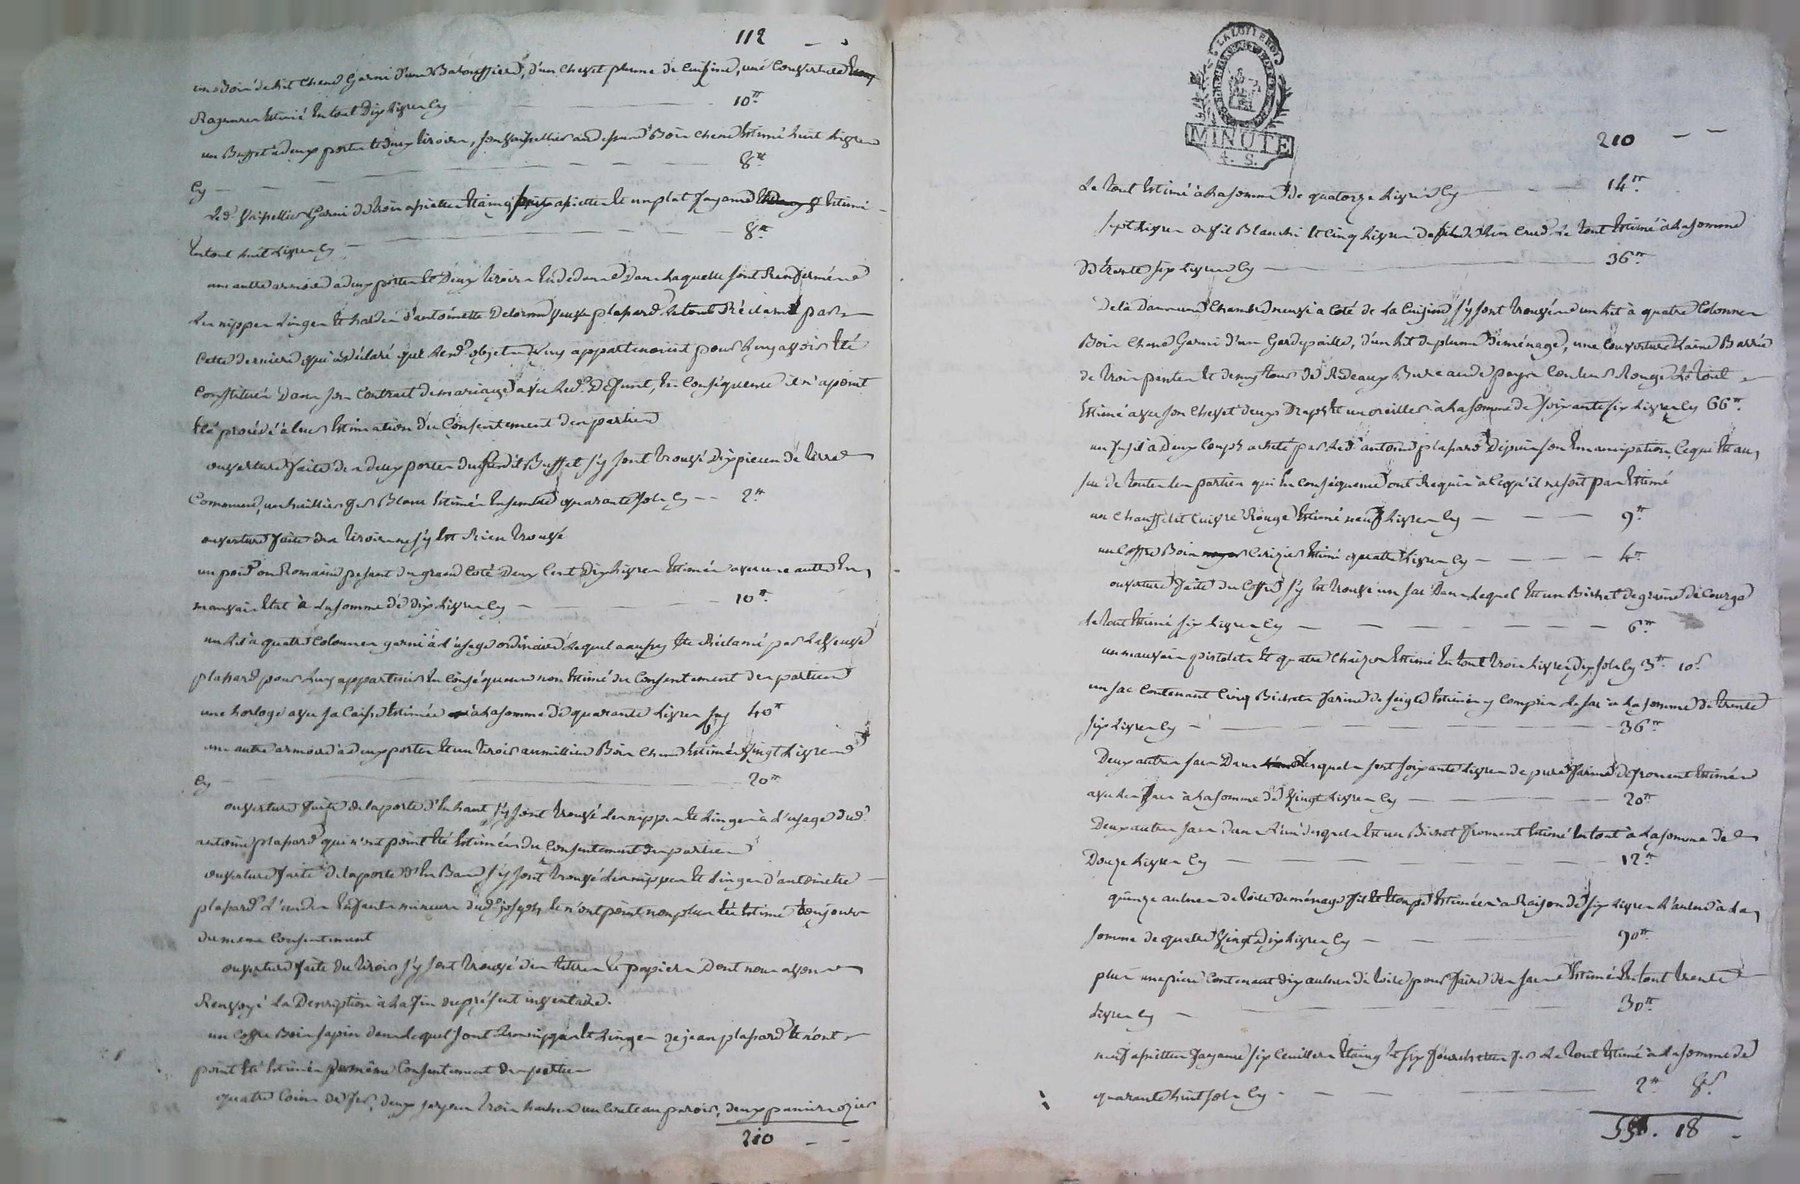 112 - -
un Bois de Lit chene Garni d'une Baloufiere, d'un chevet plume de Cuisine, une Couverture
Estimé En tout Dix Livres Cy 10tt
un Buffet à deux portes et deux tiroirs, son vaisellier au dessus Bois chene Estimé huit Livres
Cy 8tt
Led. vaisellier Garni de trois assiettes Etaing six assiettes Et un plat fayance Estimé
Entout huit Livres Cy 8tt
une autre armoire a deux portes Et Deux tiroirs En dedans Dans Laquelle sont Renfermées
Les nippes Linges Et hardes d'antoinette Delorme veuve plasard Le tout Réclamé par
Cette derniere qui a déclaré que Lesd. objets Luy appartenoient pour Luy avoir Eté
Constitués Dans son Contrat de mariage avec Led. Defunt, En Conséquence il n'a point
Eté procédé à leur Estimation du Consentement des parties
ouverture faite des deux portes dususdit Buffet s'y sont trouvé Dix pieces de terre
Commune, un huillier Blanc Estimés Ensemble quarante sols Cy 2tt
ouverture faite des tiroirs ne s'y Est Rien trouvé
un poid ou Romaine pesant du grand Coté Deux Cent Dix Livres Estimée avec une autre En
mauvais Etat à La somme de dix Livres Cy 10tt
un Lit à quatre Colonnes garni à L'usage ordinaire Lequel a aussy Eté Réclamé par La veuve
plasard pour Luy appartenir En Conséquence non Estimé du Consentement des parties
une horloge avec sa Caisse Estimée à La somme de quarante Livres Cy 40tt
une autre armoire à deux portes Et un tiroir au millieu Bois chene Estimée vingt Livres
Cy 20tt
ouverture faite de la porte d'En haut s'y sont trouvé Les nippes Et Linges à L'usage dud.
antoine plasard qui n'ont point Eté Estimés du Consentement des parties
ouverture faite de la porte d'En Bas s'y sont trouvé Les nippes Et Linges d'antoinette
plasard L'un des Enfants mineurs dud. joseph Et n'ont point non plus Eté Estimé toujours
du meme Consentement
ouverture faite du tiroir s'y sont trouvé des titres Et papiers Dont nous avons
Renvoyé La Description à La fin du présent inventaire.
un Coffre Bois sapin dans Lequel sont Les nippes Et Linges de jean plasard Et n'ont
point Eté Estimés du même Consentement des parties
quatre Coins de fer, deux trois haches un Couteau parois, deux paniers ozier
210 - -
LA LOI LE ROI
MINUTE
4. S.
210 - -
Le tout Estimé à La somme de quatorze Livres Cy 14tt
sept Livres de fil Blanchi Et Cinq Livres de fil Crud Le tout Estimé à La somme
De trente six Livres Cy 36tt
De là Dans une Chambre neuve à Coté de La Cuisine s'y sont trouvés un Lit à quatre Colonnes
Bois Chene Garni d'un Gardepaille, d'un Lit de plume de ménage, une Couverture Laine Barrée
de trois pentes Et demy tour de Rideaux Bure aude pays Couleur Rouge Le tout
Estimé avec son Chevet deux Draps Et un oreiller à La somme de soixante six Livres Cy 66tt
un fusil à Deux Coups acheté par Led. antoine plasard Depuis son Emancipation, Ce qui Est au
su de toutes Les parties qui En Conséquence ont Requis à Ce qu'il ne soit pas Estimé
un Chauffelit Cuivre Rouge Estimé neuf Livres Cy 9tt
un Coffre Bois Cerizier Estimé quatre Livres Cy 4tt
ouverture faite du Coffre s'y Est trouvé un sac Dans Lequel Est un Bichet de graine de Courge
Le tout Estimé six Livres Cy 6tt
un mauvais pistolet Et quatre Chaizes Estimé En tout trois Livres Dix sols Cy 3tt 10s
un sac Contenant Cinq Bichets farine de seigle Estimés y Compris Le sac à La somme De trente
six Livres Cy 36tt
Deux autres sacs Dans Lesquels sont soixante Livres de pure farine de froment Estimés
avec Les sacs à La somme de vingt Livres Cy 20tt
Deux autres sacs Dans L'un desquels Est un Bichet froment Estimé En tout à La somme de
Douze Livres Cy 12tt
quinze aulnes de toile de ménage fil Et Etoupe Estimées à Raison de six Livres L'aulne à La
somme de quatre vingt Dix Livres Cy 90tt
plus une piece Contenant dix aulnes de toile pour faire des sacs Estimé En tout trente
Livres Cy 30tt
neuf assiettes fayance six Cuilleres Etaing Et six fourchettes fer Le tout Estimé à La somme de
quarante huit sols Cy 2tt 8s
18